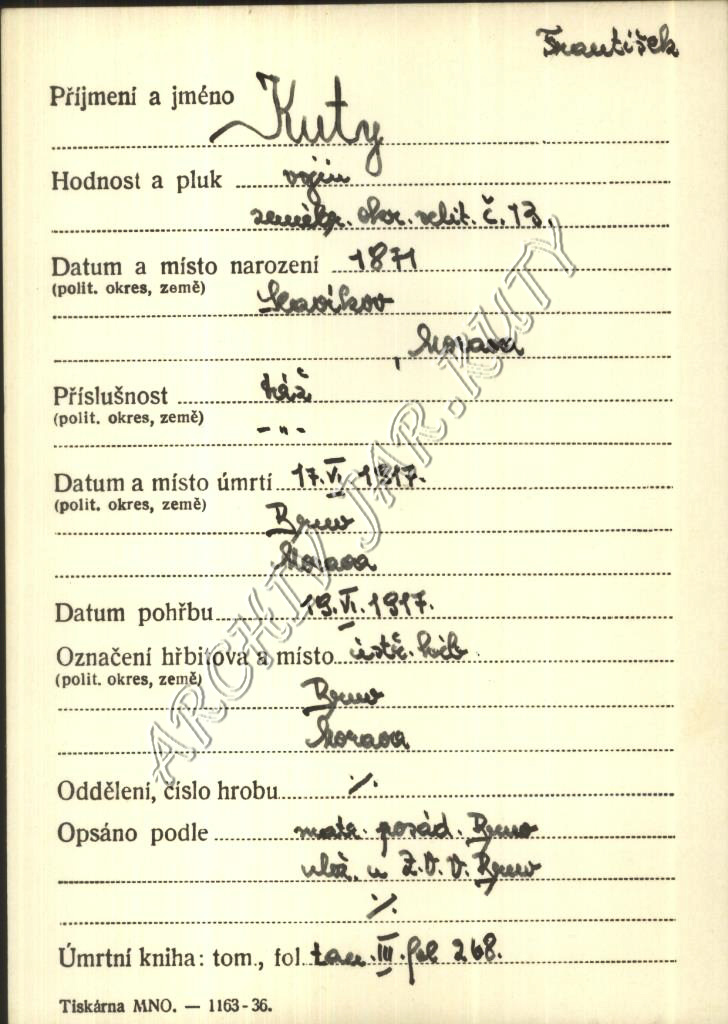 František
Příjmení a jméno Kuty
Hodnost a pluk vojín
zeměbr. okr. velit. č. 13.
Datum a místo narození 1871
(polit. okres, země)
Slavíkov
, Morava
Příslušnost též
(polit. okres, země)
- " -
Datum a místo úmrtí 17. VI. 1917.
(polit. okres, země)
Brno
Morava
Datum pohřbu 19. VI. 1917.
Označení hřbitova a místo ústř. hřb
(polit. okres, země)
Brno
Morava
Oddělení, číslo hrobu ·/.
Opsáno podle matr. posád. Brno
ulož. u Z.V.V. Brno
·/.
Úmrtní kniha: tom., fol. tom. III. fol 268.
Tiskárna MNO. — 1163-36.
ARCHIV JAR. KUTY